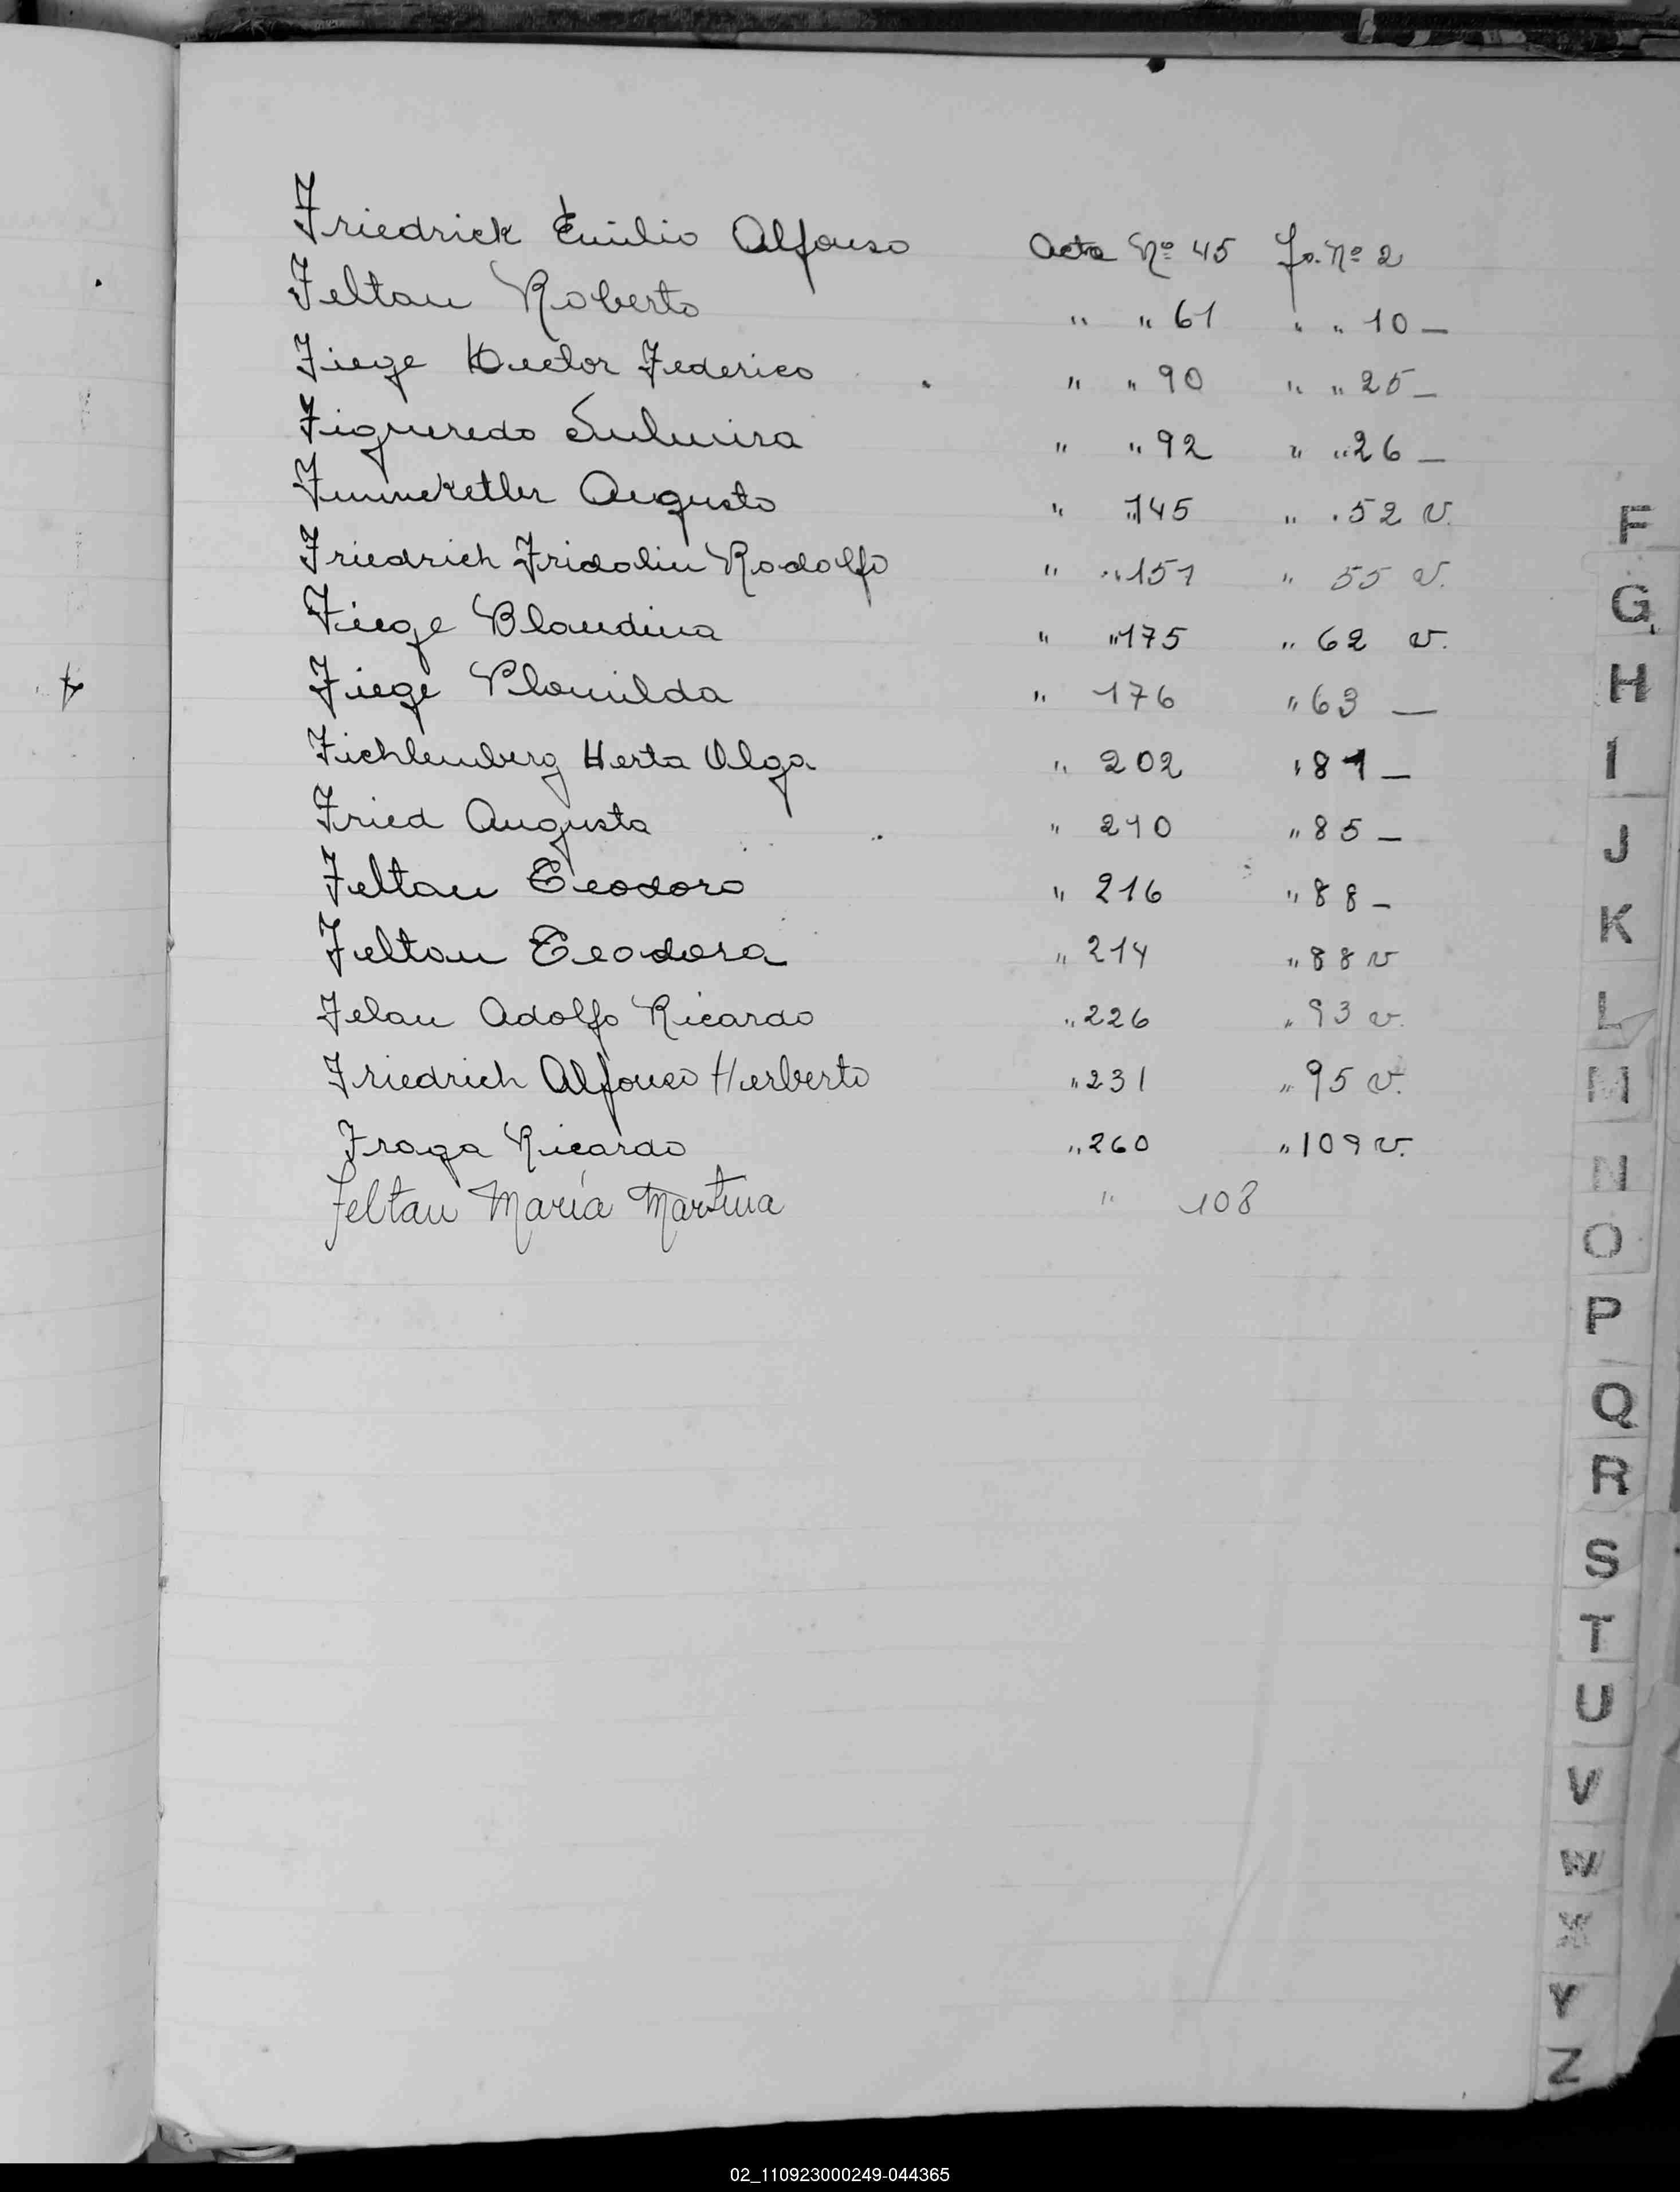 Friedrick Emilio Alfonso Acta Nº 45 Fo. Nº 2
Feltan Roberto " " 61 " " 10 —
Fiege Hector Federico " " 90 " " 25 —
Figueredo Sulmira " " 92 " " 26 —
Augusto " " 145 " " 52 v.
Friedrich Fridolin Rodolfo " " 151 " 55 v.
Fiege Blandina " " 175 " 62 v.
Fiege Clomilda " 176 " 63 —
Fichlemberg Herta Olga " 202 " 81 —
Fried Augusta " 210 " 85 —
Feltan Teodoro " 216 " 88 —
Feltan Teodora " 214 " 88 v
Felau Adolfo Ricardo " 226 " 93 v.
Friedrich Alfonso Herberto " 231 " 95 v.
Fraga Ricardo " 260 " 109 v.
Feltau María Martina " 108
F
G
H
I
J
K
L
M
N
O
P
Q
R
S
T
U
V
W
X
Y
Z
02_110923000249-044365